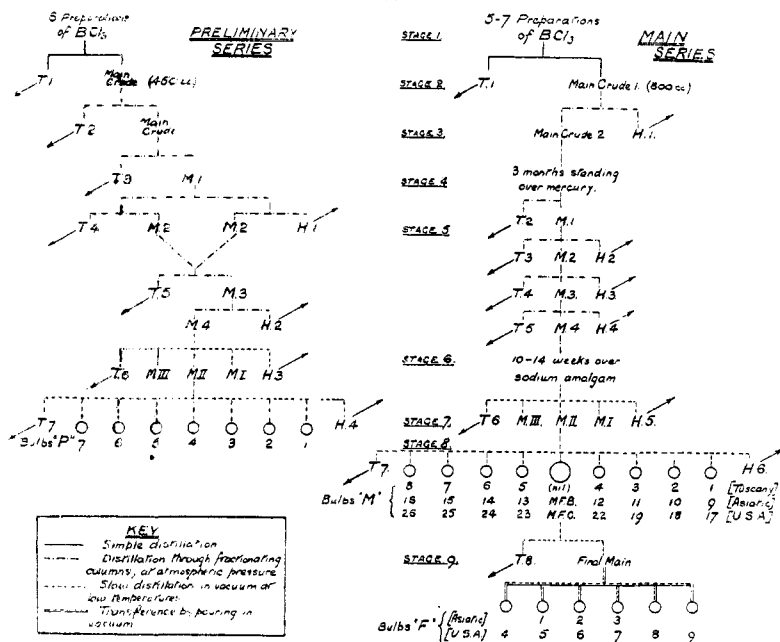 5 Preparations
of BCl3
PRELIMINARY
SERIES
T.1
Main
Crude (450cc)
T2
Main
Crude
T3 M.1
T.4. M.2 M.2 H.1
T.5 M.3
M.4 H.2
T.6 M.III M.II M.I H.3
T.7 H.4
Bulbs "P" 7 6 5 4 3 2 1
KEY
Simple distillation
Distillation through fractionating
columns, at atmospheric pressure
Slow distillation in vacuum at
low temperatures
Transference by pouring in
vacuum
5-7 Preparations
of BCl3
MAIN
SERIES
STAGE 1.
STAGE 2.
T.1 Main Crude 1. (800cc)
STAGE 3.
Main Crude 2 H.1.
STAGE 4
3 months standing
over mercury.
STAGE 5
T.2 M.1
T.3 M.2 H.2
T.4 M.3. H.3.
T.5 M.4 H.4
STAGE 6.
10-14 weeks over
sodium amalgam
STAGE 7.
T6 M.III. M.II. M.I H.5.
STAGE 8.
T7. H6.
8 7 6 5 (nil) 4 3 2 1 [Tuscany]
Bulbs "M" 16 15 14 13 M.F.B. 12 11 10 9 [Asiatic]
26 25 24 23 M.F.C. 22 19 18 17 [U.S.A]
STAGE 9.
T.8. Final Main
Bulbs "F" [Asiatic] 1 2 3
[U.S.A.] 4 5 6 7 8 9